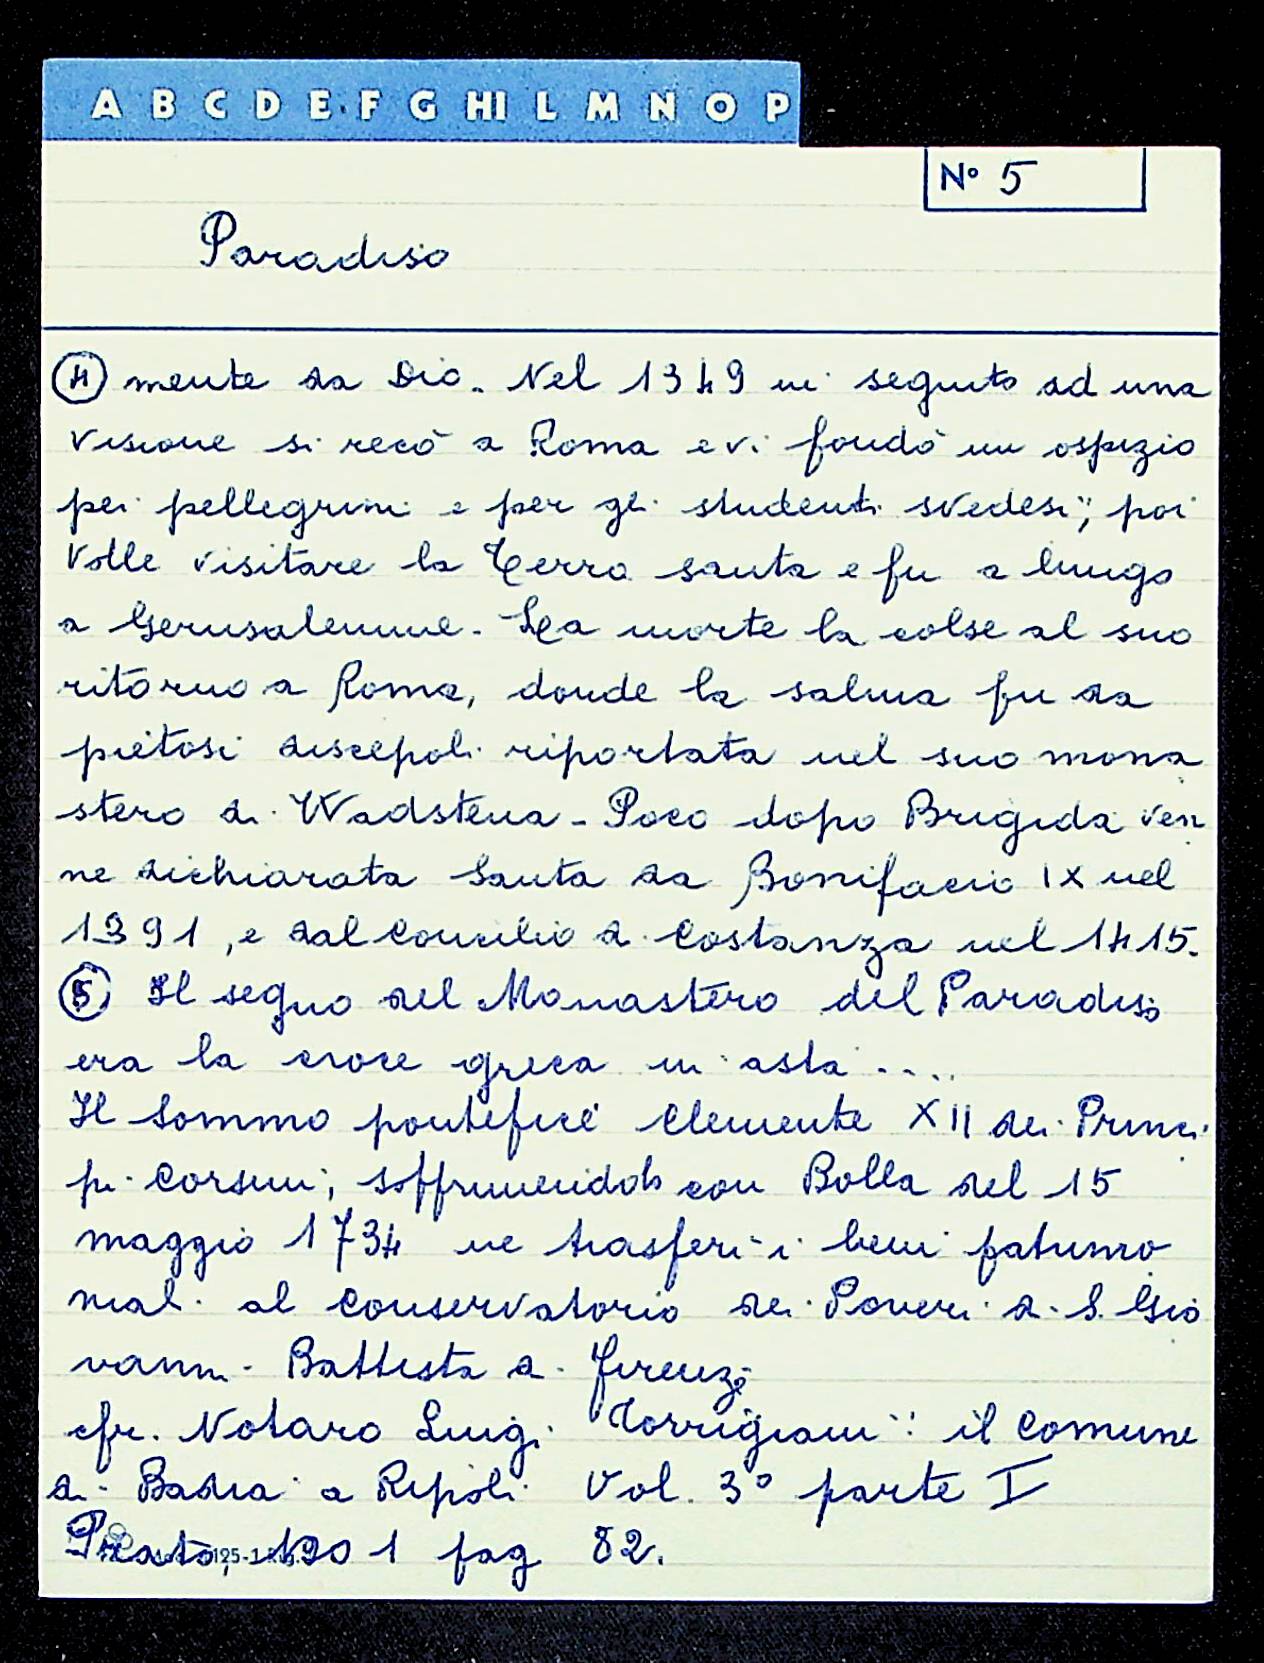 A B C D E F G HI L M N O P
N° 5
Paradiso
④ mente da Dio. Nel 1349 in seguito ad una
visione si recò a Roma e vi fondò un ospizio
pei pellegrini e per gli studenti svedesi; poi
volle visitare la Terra santa e fu a lungo
a Gerusalemme. La morte la colse al suo
ritorno a Roma, donde la salma fu da
pietosi discepoli riportata nel suo mona
stero di Wadstena - Poco dopo Brigida ven
ne dichiarata Santa da Bonifacio IX nel
1391, e dal Concilio di Costanza nel 1415.
⑤ Il segno del Monastero del Paradiso
era la croce greca in asta ....
Il Sommo pontefice Clemente XII dei Princi
pi Corsini, sopprimendolo con Bolla del 15
maggio 1734 ne trasferì i beni patrimo
niali al Conservatorio dei Poveri di S. Gio
vanni Battista di Firenze
cfr. Notaro Luigi Torrigiani: il Comune
di Badia a Ripoli Vol. 3° parte I
Prato, 1901 pag 82.